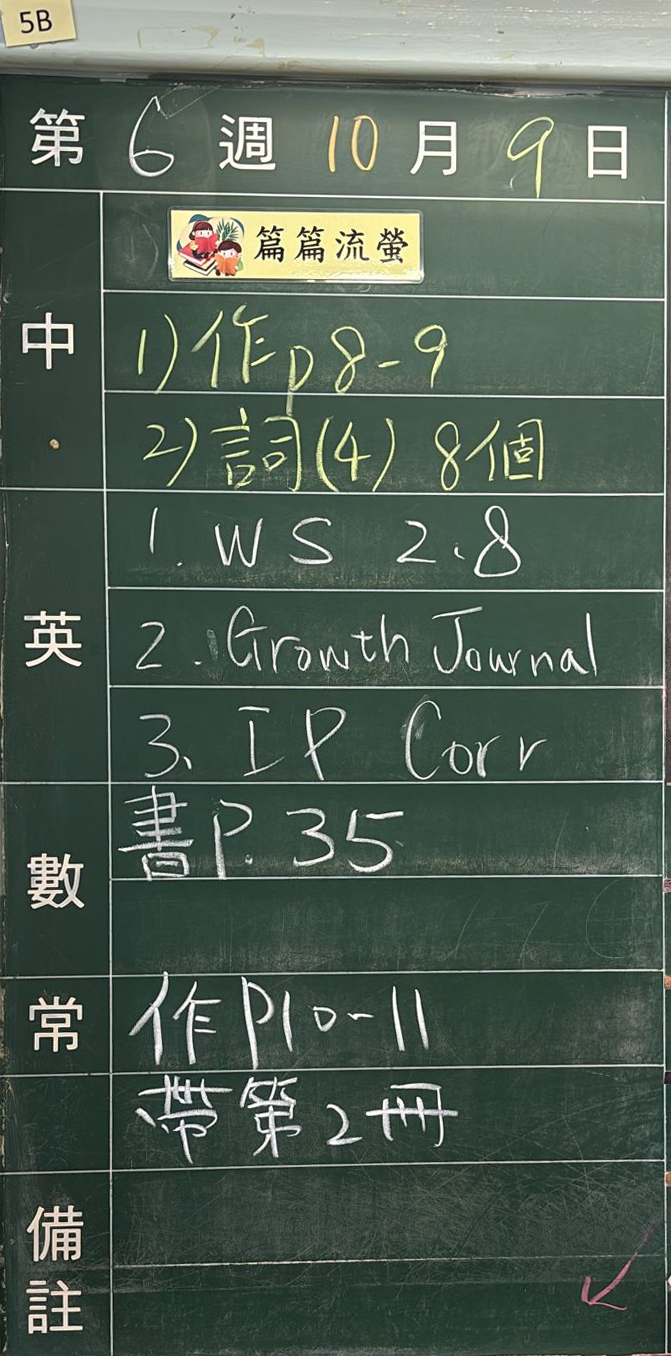 5B
第 6 週 10 月 9 日
篇篇流螢
中
1) 作 p 8-9
2) 詞(4) 8個
英
1. WS 2.8
2. Growth Journal
3. IP Corr
數
書P. 35
常
作 P10-11
帶第2冊
備註